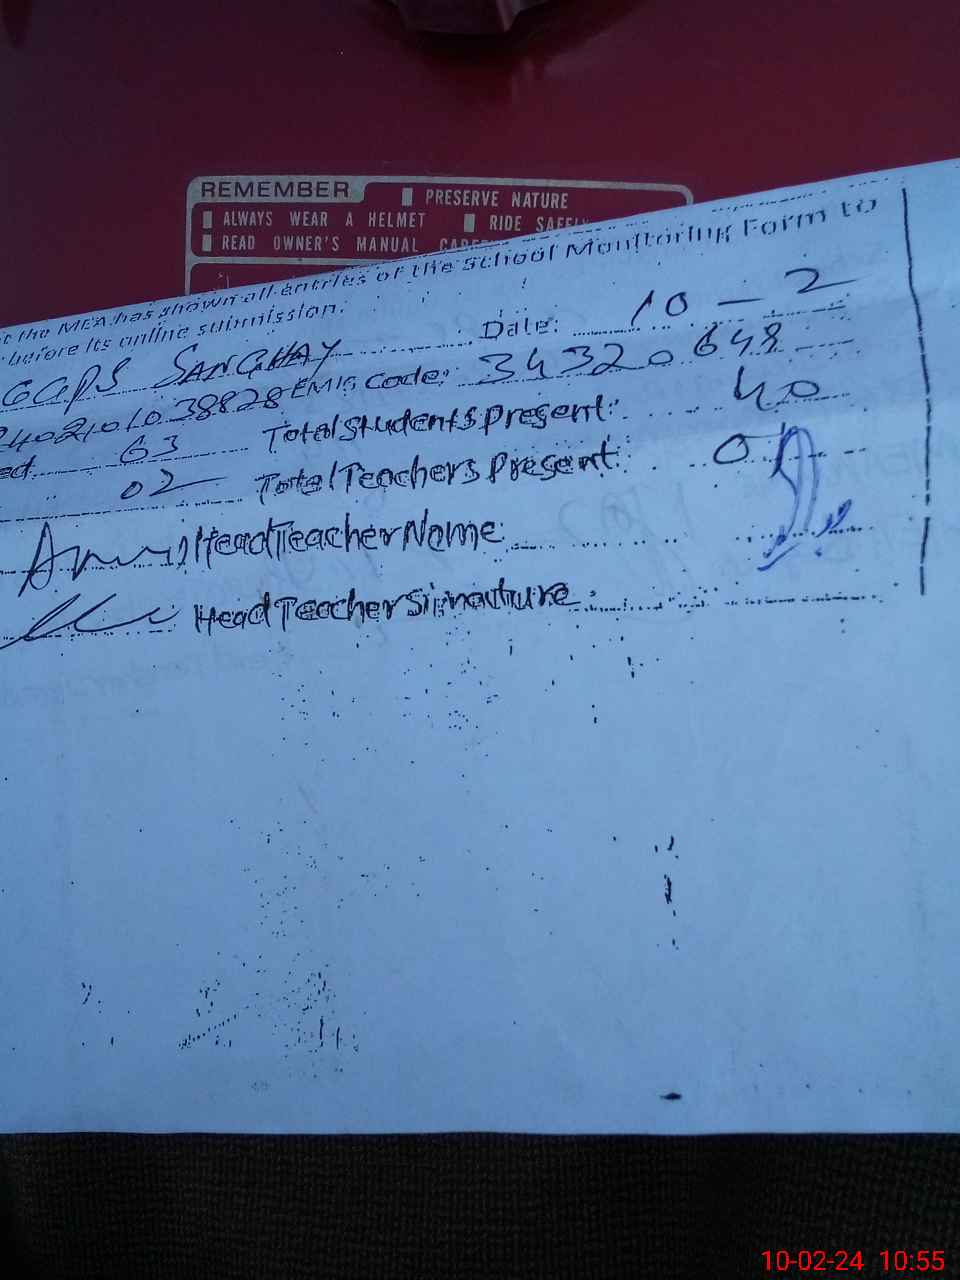 REMEMBER
PRESERVE NATURE
ALWAYS WEAR A HELMET
RIDE SAFELY
READ OWNER'S MANUAL
the MEA has shown all entries of the School Monitoring Form to
before its online submission.
GGPS SANGHAY Date: 10-2
EMIS Code: 34320648
63 Total Students Present: 40
02 Total Teachers Present: 01
Head Teacher Name:
Head Teacher Signature:
10-02-24 10:55